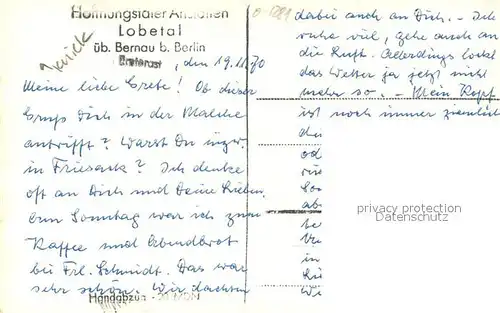 Hoffnungstaler Anstalten
Lobetal
üb. Bernau b. Berlin
zurück
, den 19.11.70
Meine liebe Grete! Ob dieser
Gruß Dich in der Malche
antrifft? Warst Du inzw.
in Friesack? Ich denke
oft an Dich und Deine Lieben.
Am Sonntag war ich zum
Kaffee und Abendbrot
bei Frl. Schmidt. Das war
sehr schön. Wir dachten
Handabzug
dabei auch an Dich. - Ich
ruhe viel, gehe auch an
die Luft. Allerdings lockt
das Wetter ja jetzt nicht
mehr so. - Mein Kopf
ist noch immer ziemlich
privacy protection
Datenschutz